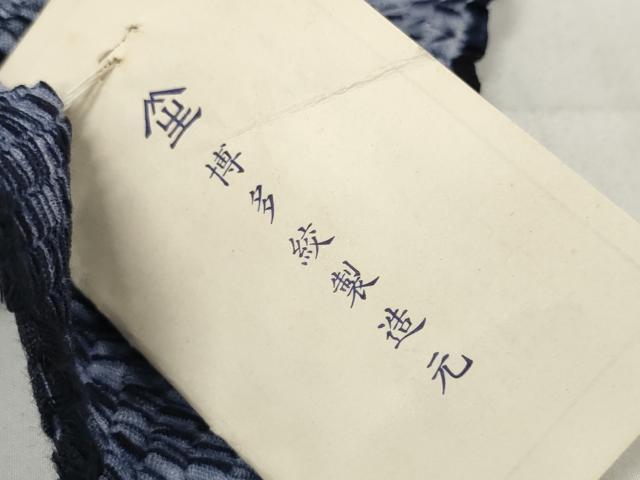 博多絞製造元